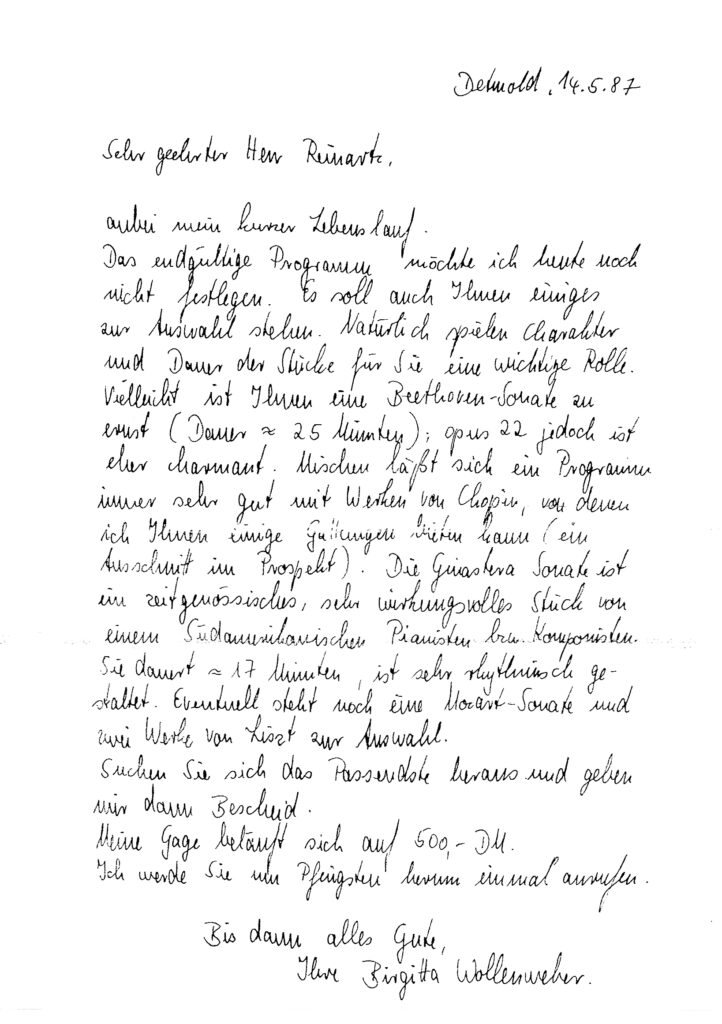 Detmold, 14.5.87
Sehr geehrter Herr Reinartz,
anbei mein kurzer Lebenslauf.
Das endgültige Programm möchte ich heute noch
nicht festlegen. Es soll auch Ihnen einiges
zur Auswahl stehen. Natürlich spielen Charakter
und Dauer der Stücke für Sie eine wichtige Rolle.
Vielleicht ist Ihnen eine Beethoven-Sonate zu
ernst (Dauer ≈ 25 Minuten); opus 22 jedoch ist
eher charmant. Mischen läßt sich ein Programm
immer sehr gut mit Werken von Chopin, von denen
ich Ihnen einige Gattungen bieten kann (ein
Ausschnitt im Prospekt). Die Ginastera Sonate ist
ein zeitgenössisches, sehr wirkungsvolles Stück von
einem Südamerikanischen Pianisten bzw. Komponisten.
Sie dauert ≈ 17 Minuten, ist sehr rhytmisch ge-
staltet. Eventuell steht noch eine Mozart-Sonate und
zwei Werke von Liszt zur Auswahl.
Suchen Sie sich das Passendste heraus und geben
mir dann Bescheid.
Meine Gage beläuft sich auf 500,- DM.
Ich werde Sie um Pfingsten herum einmal anrufen.
Bis dann alles Gute,
Ihre Birgitta Wollenweber.